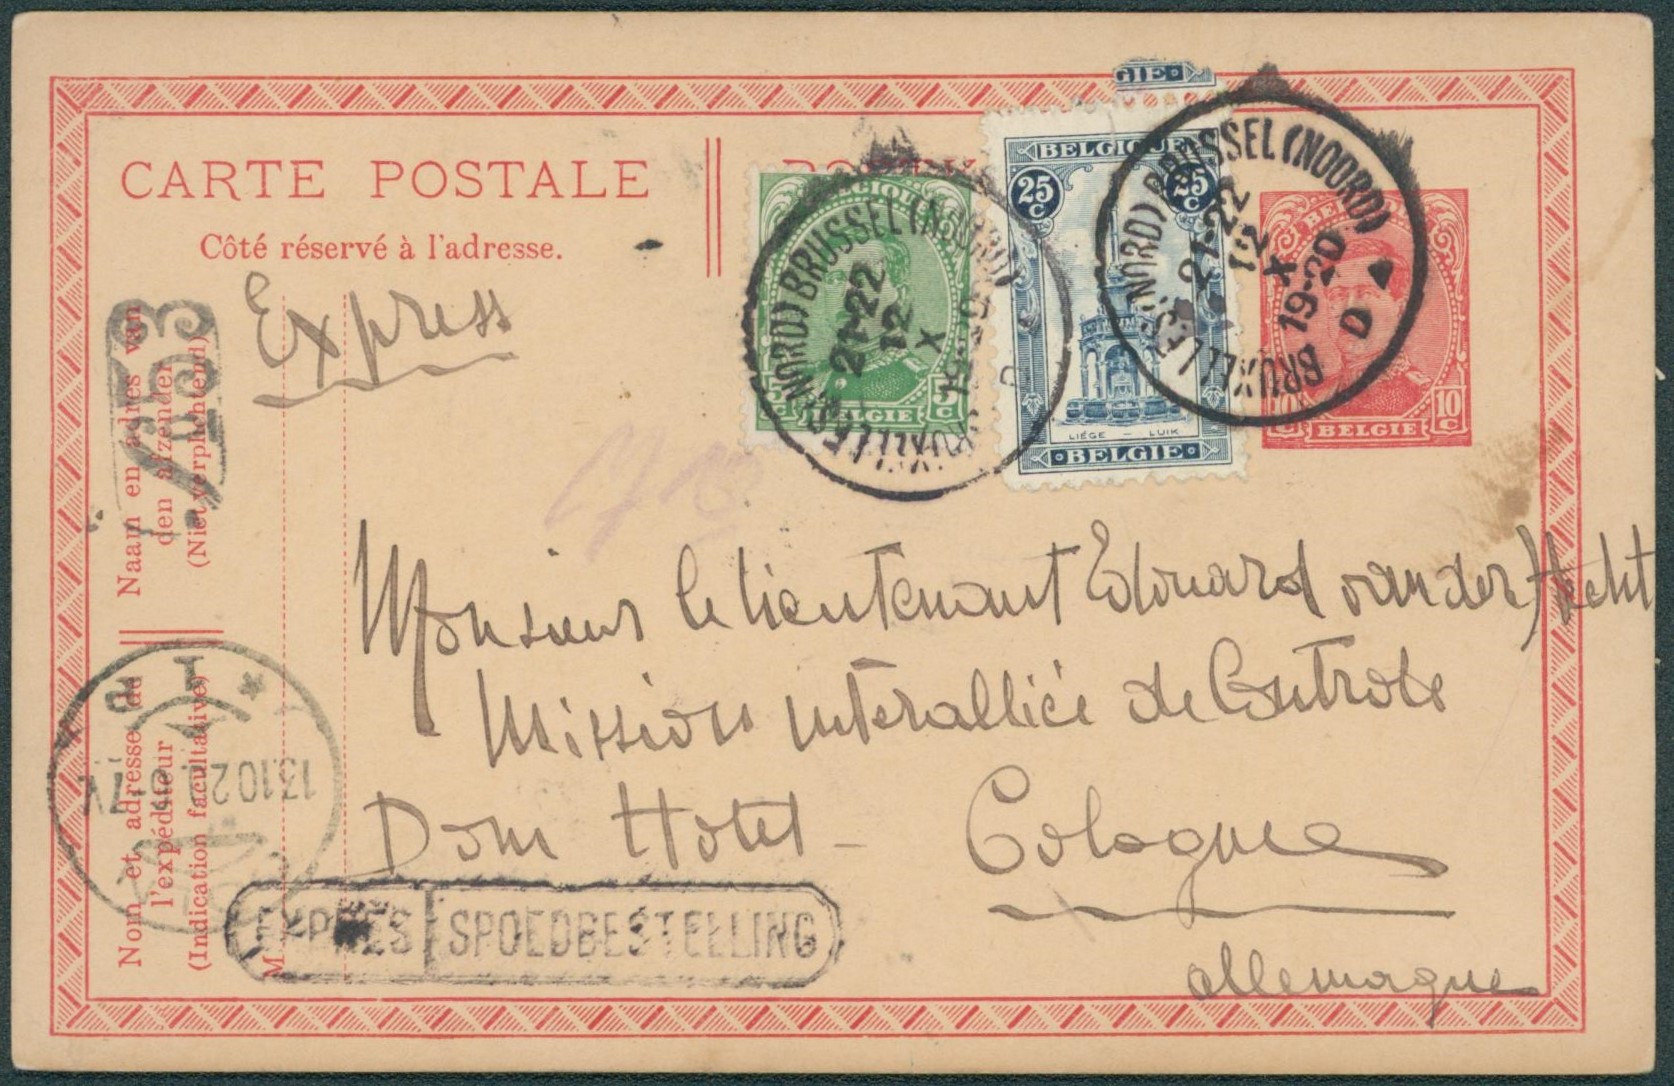 CARTE POSTALE
Côté réservé à l'adresse.
Express
GIE
BELGIQUE
25 C
25 C
LIÉGE – LUIK
BELGIE
5 C
BELGIE
10 C
BELGIE
BRUXELLES (NORD) BRUSSEL (NOORD)
21-22
12
X
BRUXELLES (NORD) BRUSSEL (NOORD)
21-22
12
X
19-20
D
Naam en adres van
den afzender
(Niet verplichtend)
Nom et adresse de
l'expéditeur
(Indication facultative)
M.
13.10.20. 6-7V
Monsieur le lieutenant Edouard van der Hecht
Mission interalliée de Controle
Dom Hotel – Cologne
allemagne
EXPRÈS SPOEDBESTELLING